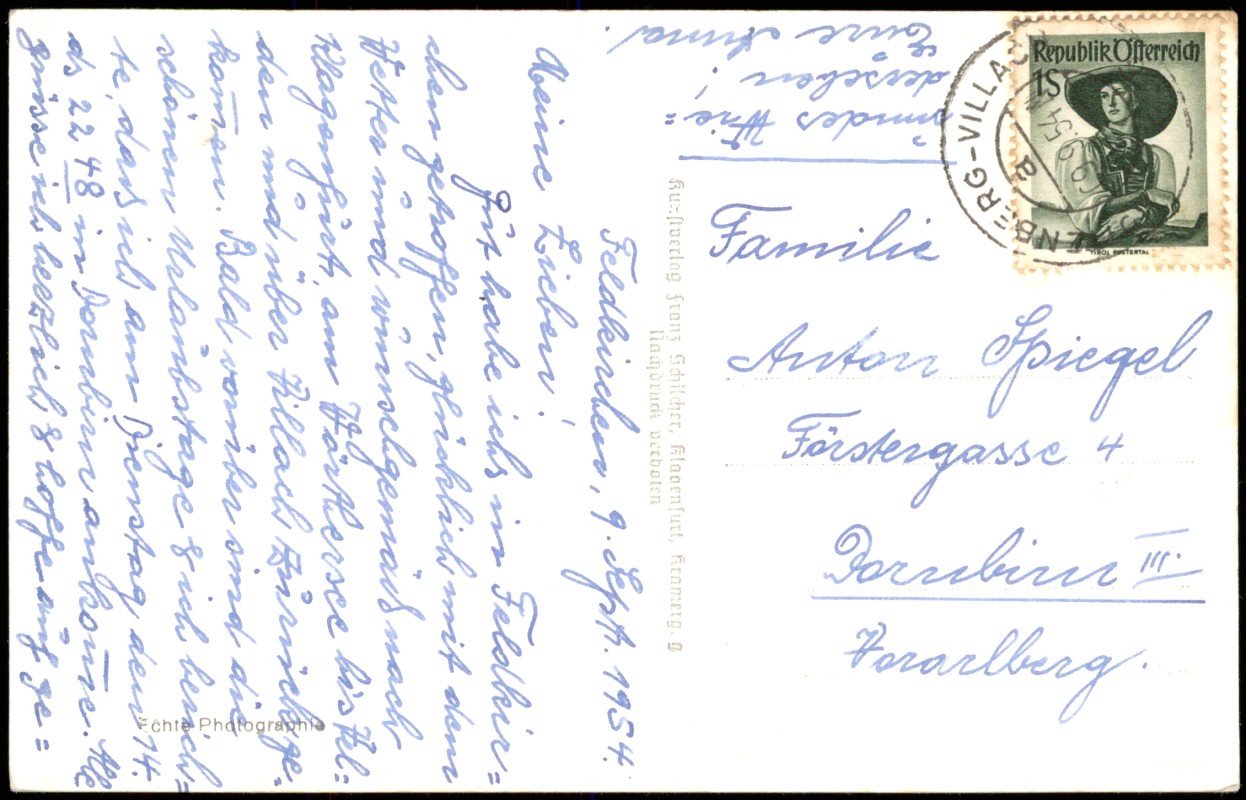 Feldkirchen, 9. Sept. 1954.
Meine Lieben!
Gut habe ich's in Feldkir=
chen getroffen, glücklich mit dem
Wetter und wunschgemäß nach
Klagenfurt, am Wörthersee bis Vel=
den und über Villach zurückge=
kom̅en. Bald vorüber sind die
schönen Urlaubstage & ich berich=
te, daß ich am Dienstag, den 14.
ds 22 48 in Dornbirn ankom̅e. Alle
grüsse ich herzlich & hoffe auf ge=
sundes Wie=
dersehen,
Eure Anna.
Republik Österreich
1S
TIROL PUSTERTAL
ENBERG-VILLAC
a
9.9.54
Familie
Anton Spiegel
Förstergasse 4
Dornbirn III.
Vorarlberg.
Kunstverlag Franz Schilcher, Klagenfurt, Kramerg. 9
Nachdruck verboten
Echte Photographie